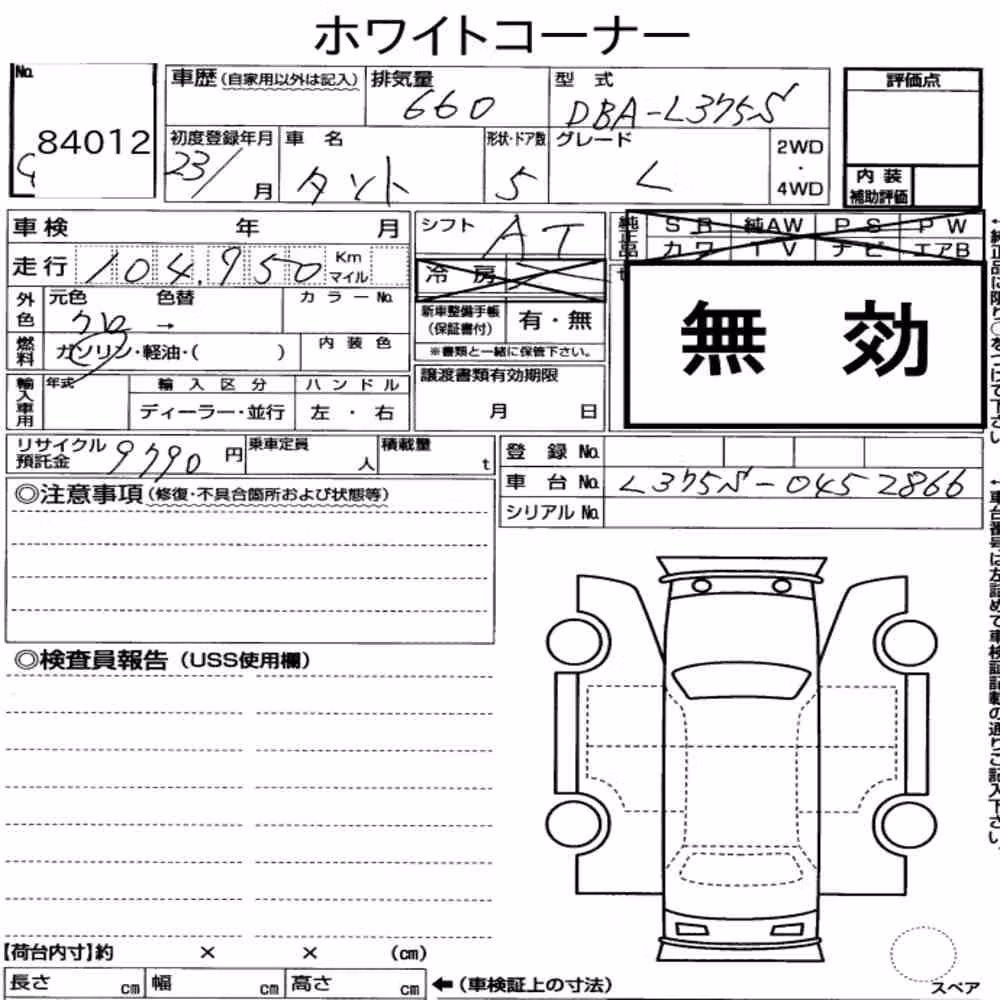 ホワイトコーナー
No.
84012
車歴 (自家用以外は記入)
排気量
660
型 式
DBA-L375S
評価点
初度登録年月
23/ 月
車 名
タント
形状・ドア数
5
グレード
L
2WD
・
4WD
内 装
補助評価
車検 年 月
シフト AT
純正品
S R 純AW P S P W
カワ TV ナビ エアB
走行 104,950 Km
マイル
冷 房
外色
元色 色替 カラーNo.
クロ →
新車整備手帳
(保証書付)
有・無
※書類と一緒に保管下さい。
燃料
ガソリン・軽油・( )
内 装 色
無 効
輸入車用
年式
輸 入 区 分
ハ ン ド ル
ディーラー・並行
左 ・ 右
譲渡書類有効期限
月 日
リサイクル
預託金
9790 円
乗車定員
人
積載量
t
登 録 No.
車 台 No. L375S-0452866
シリアル No.
◎注意事項 (修復・不具合箇所および状態等)
◎検査員報告 (USS使用欄)
【荷台内寸】約 × × (cm)
長さ cm 幅 cm 高さ cm
←(車検証上の寸法)
スペア
←純正品に限り○をつけて下さい
←車台番号は左詰めで車検証記載の通りご記入下さい。